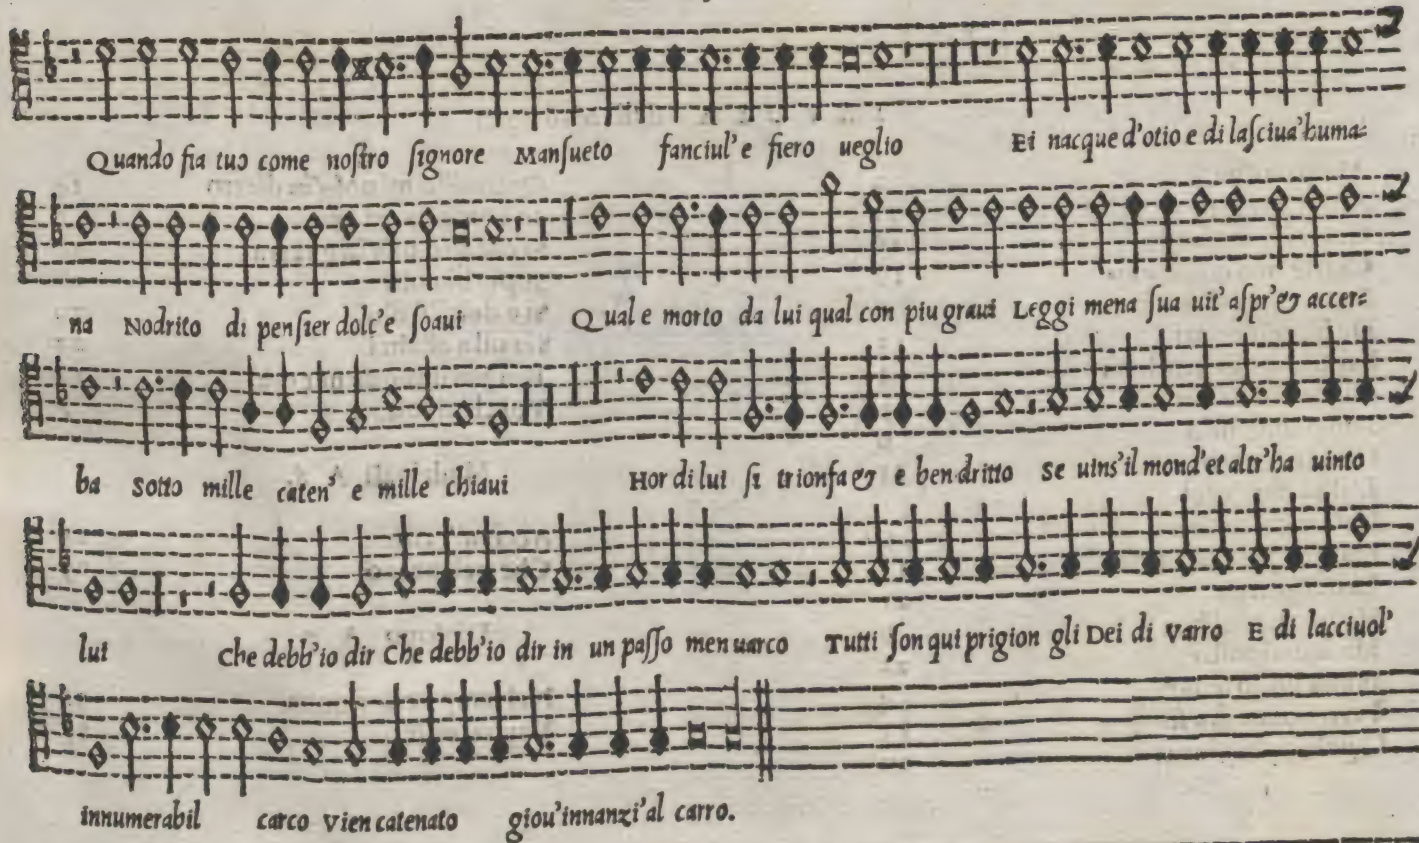 Quando fia tuo come noſtro ſignore Manſueto fanciul' e fiero ueglio Ei nacque d'otio e di laſciua'huma=
na Nodrito di penſier dolc'e ſoaui Qual e morto da lui qual con piu graui Leggi mena ſua uit' aſpr'& accer=
ba Sotto mille caten' e mille chiaui Hor di lui ſi trionfa & e ben dritto Se uins'il mond'et altr'ha uinto
lui Che debb'io dir Che debb'io dir in un paſſo men uarco Tutti ſon qui prigion gli Dei di Varro E di lacciuol'
innumerabil carco Vien catenato giou'innanzi'al carro.